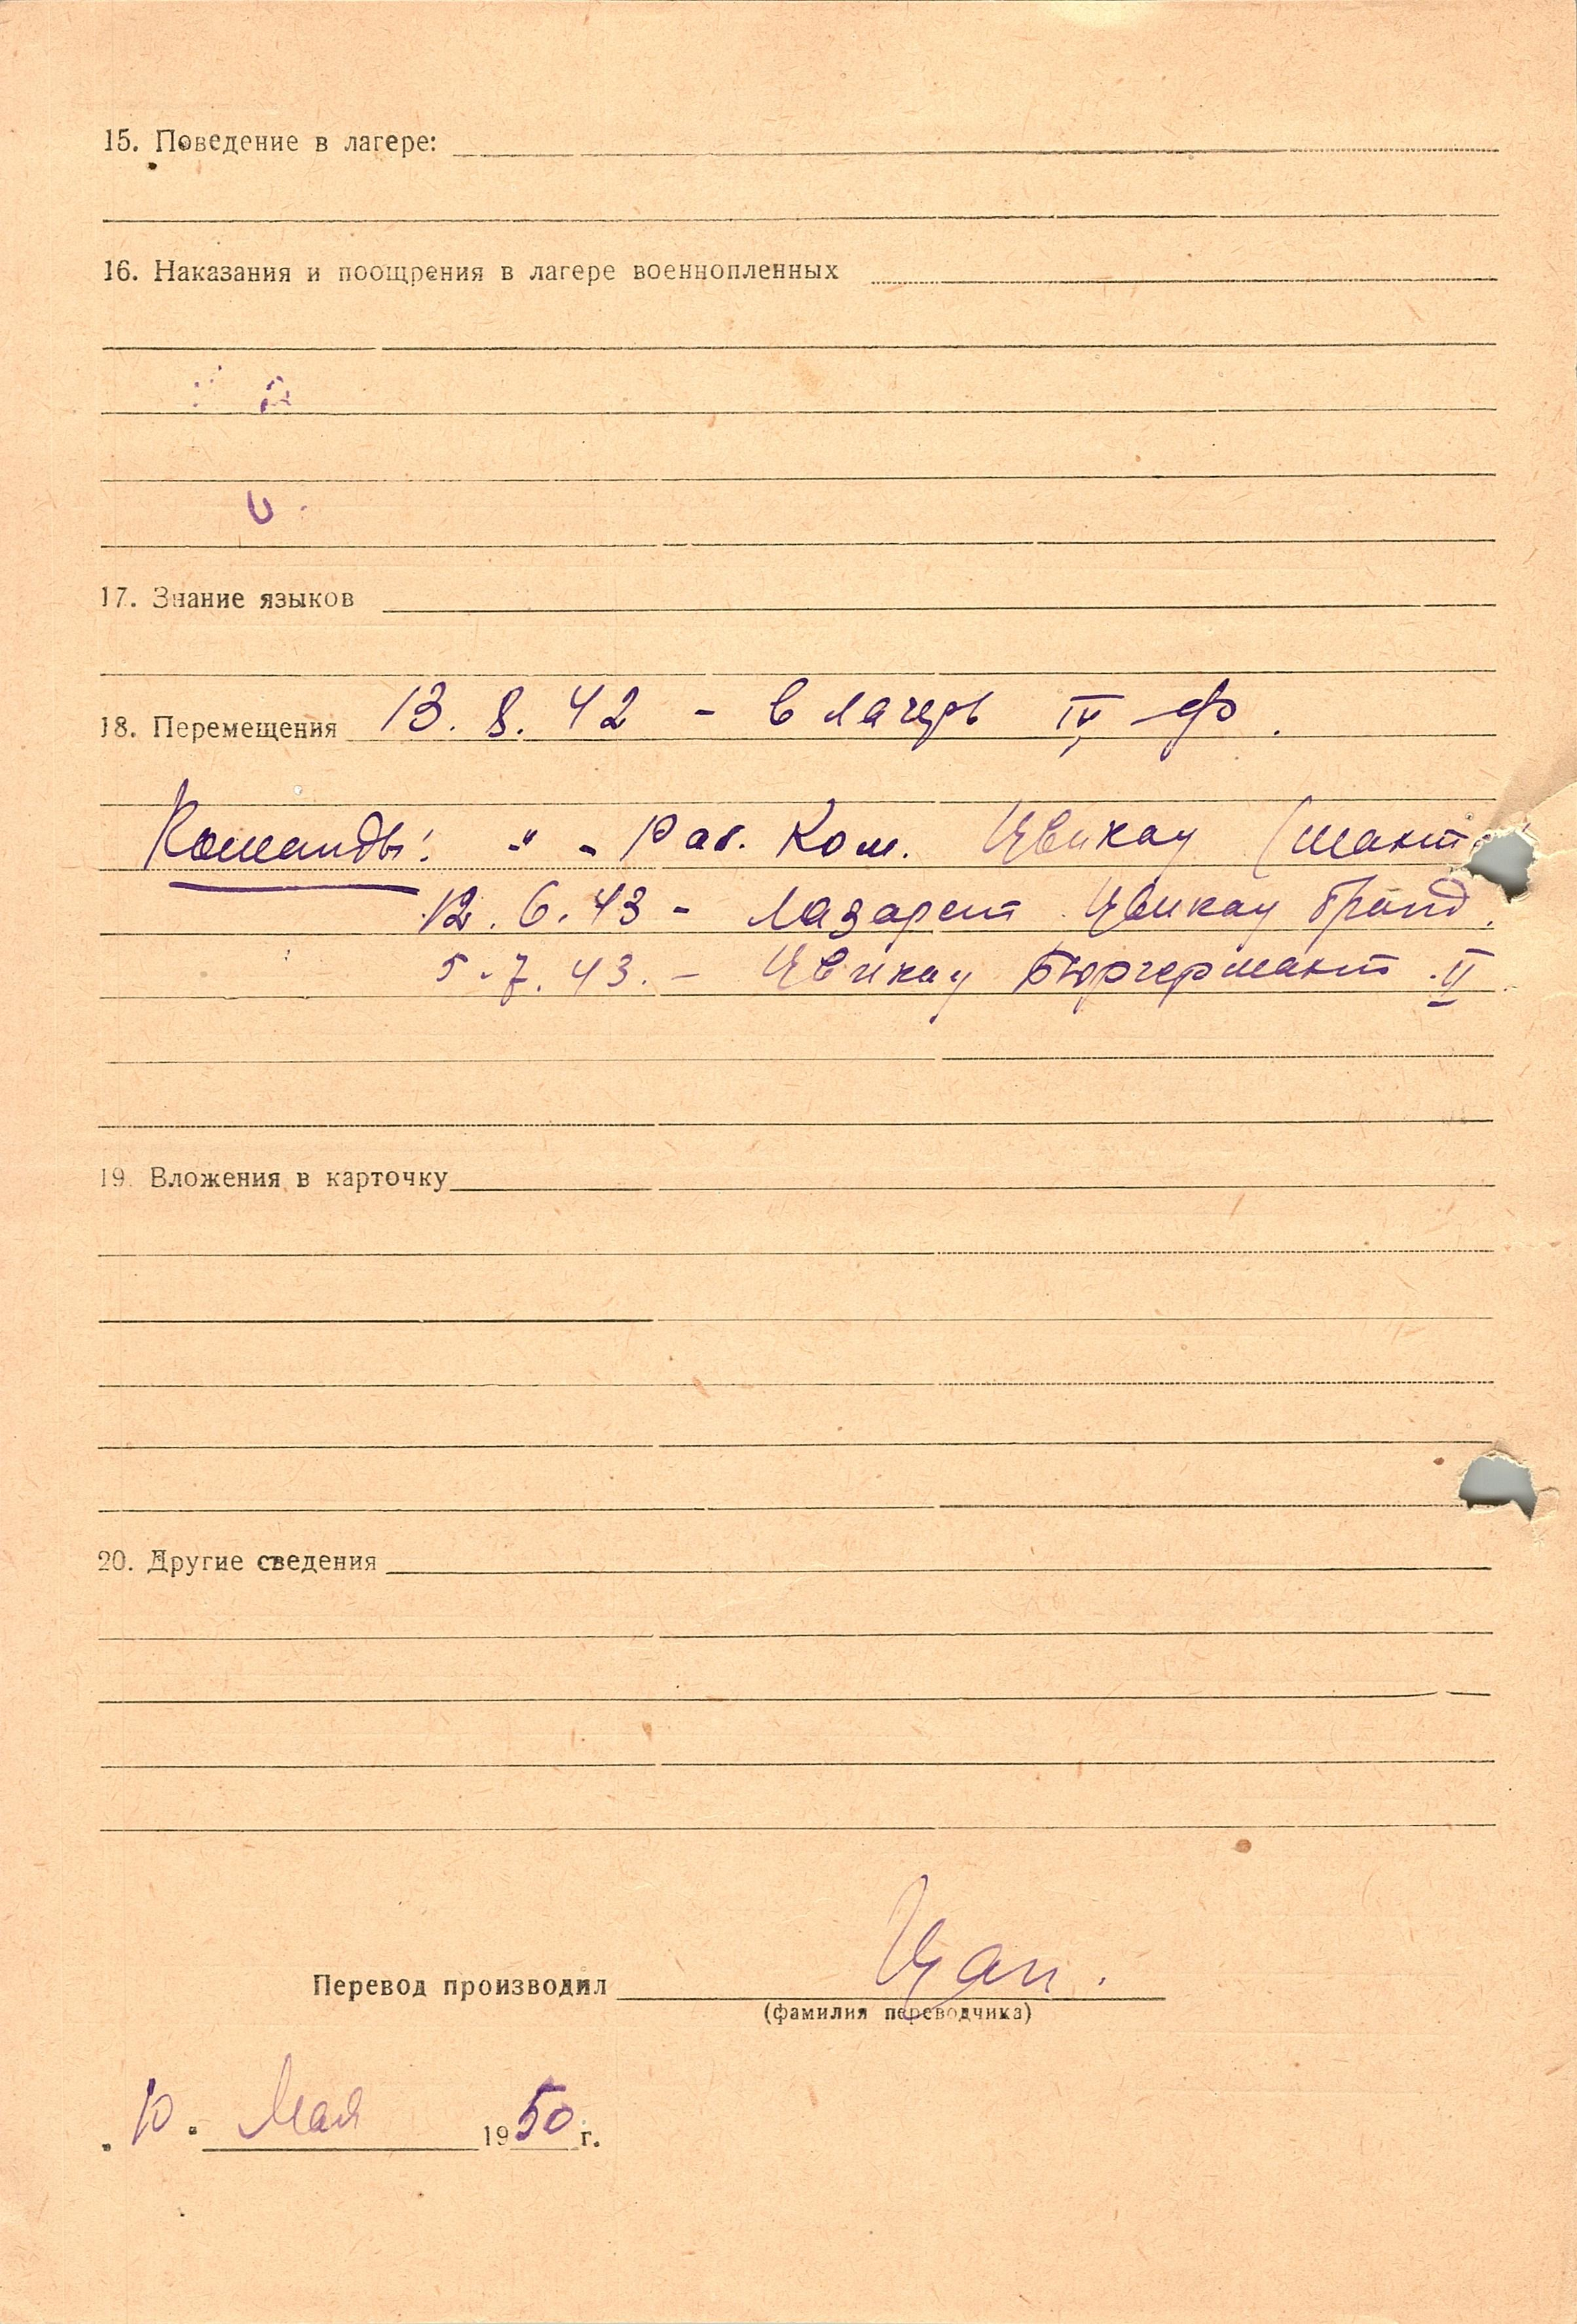 15. Поведение в лагере:
16. Наказания и поощрения в лагере военнопленных
17. Знание языков
18. Перемещения 13. 8. 42 - в лагерь IV ф.
Команды: " - Раб. Ком. Цвикау (шахт
12. 6. 43 - Лазарет Цвикау
5. 7. 43. - Цвикау Бюргершахт II
19. Вложения в карточку
20. Другие сведения
Перевод производил
(фамилия переводчика)
10. Мая 1950 г.